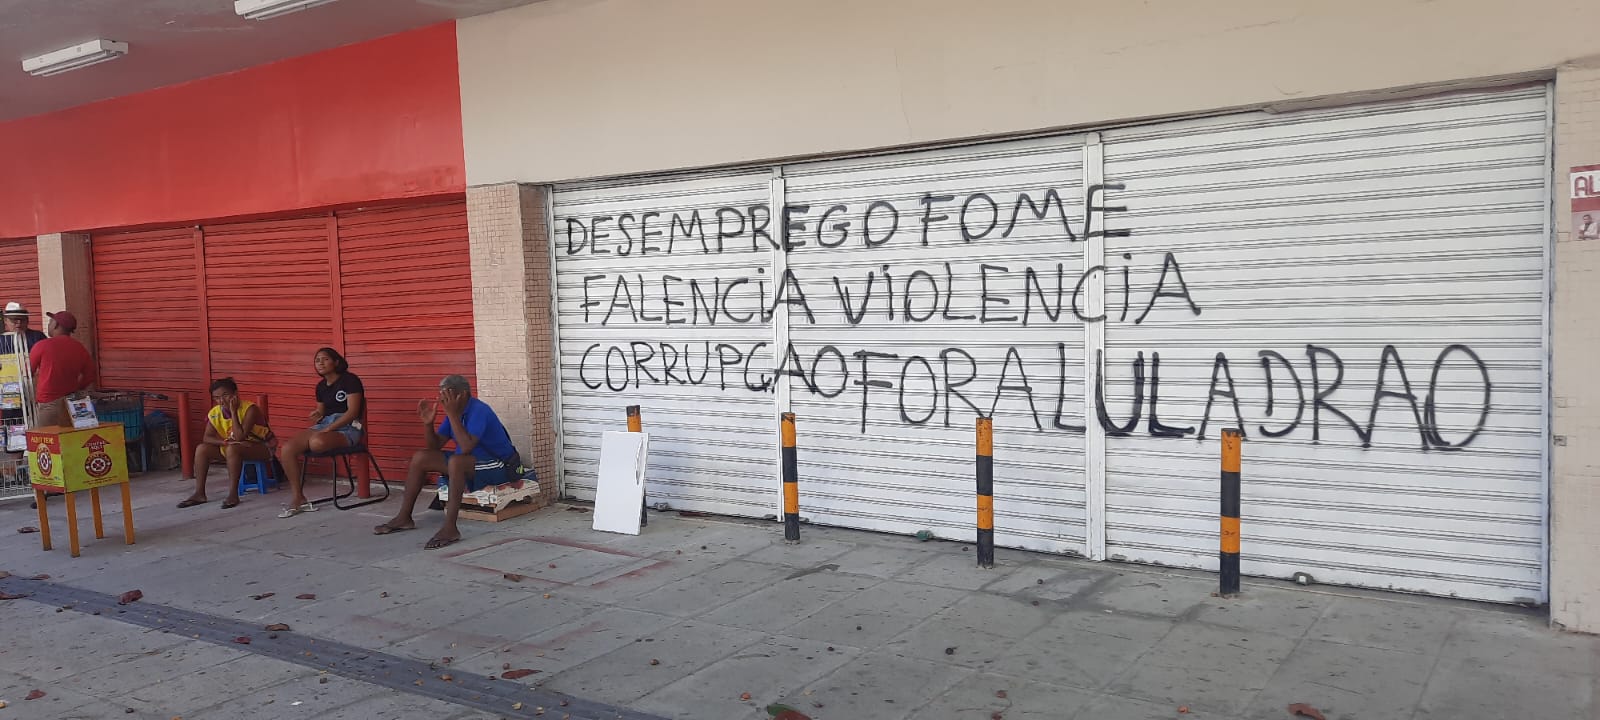 DESEMPREGO FOME
FALENCiA ViOLENCiA
CORRUPÇAO FORA LULADRAO
AL